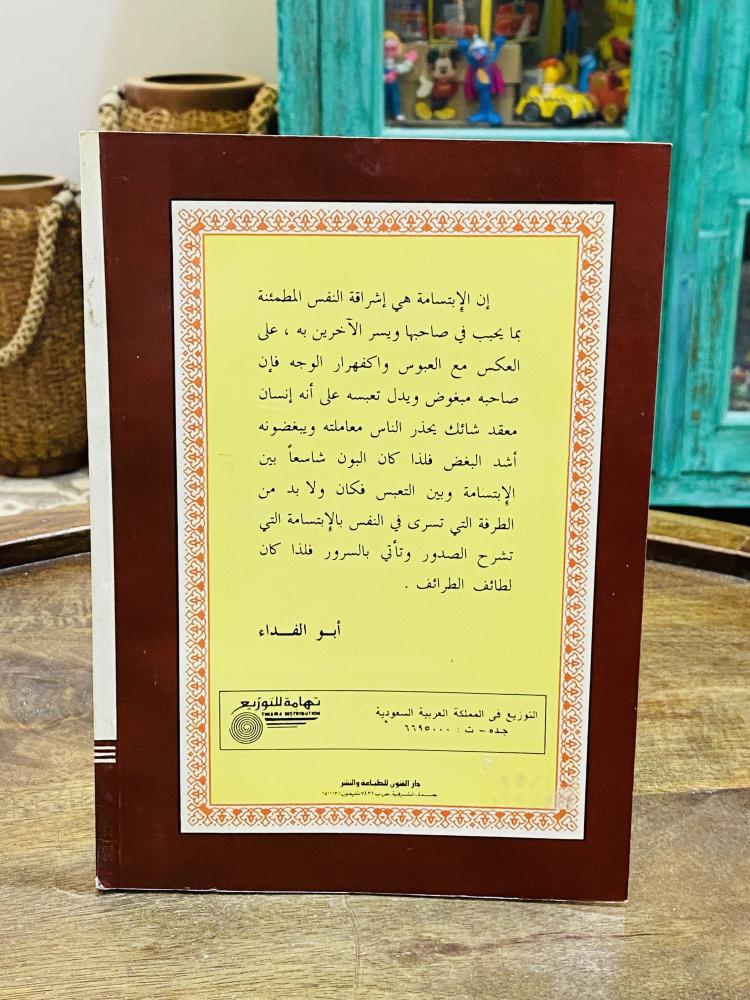 إن الإبتسامة هي إشراقة النفس المطمئنة
بما يحبب في صاحبها ويسر الآخرين به ، على
العكس مع العبوس واكفهرار الوجه فإن
صاحبه مبغوض ويدل تعبسه على أنه إنسان
معقد شائك يحذر الناس معاملته ويبغضونه
أشد البغض فلذا كان البون شاسعاً بين
الإبتسامة وبين التعبس فكان ولا بد من
الطرفة التي تسرى في النفس بالإبتسامة التي
تشرح الصدور وتأتي بالسرور فلذا كان
لطائف الطرائف .
أبو الفداء
التوزيع فى المملكة العربية السعودية
جده - ت : ٦٦٩٥٠٠٠
تهامة للتوزيع
TIHAMA DISTRIBUTION
دار الفنون للطباعة والنشر
جدة - الشرفية - ص ب ٧٤٣٢ تليفون